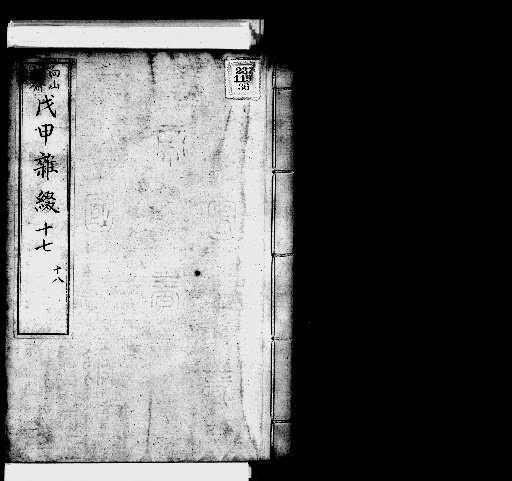 向山
戊申雜綴 十七
十八
237
119
36